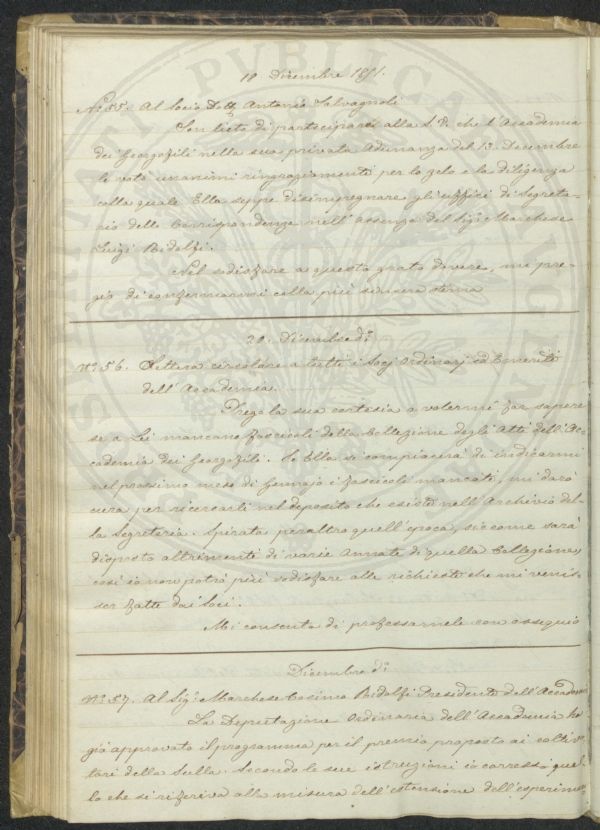 18 Dicembre 1851.
No. 55. Al Socio Dott. Antonio Salvagnoli
Son lieto di partecipare alla S. V. che l'Accademia
dei Georgofili nella sua privata Adunanza del 13. Decembre
le votò unanimi ringraziamenti per lo zelo e la diligenza
colla quale Ella seppe disimpegnare gli uffizi di Segreta-
rio delle Corrispondenze nell'assenza del Sig. Marchese
Luigi Ridolfi.
Nel sodisfare a questo grato dovere, mi pre-
gio di confermarmi colla più sincera stima
20. Dicembre di.
No. 56. Lettera circolare a tutti i Socj Ordinarj ed Emeriti
dell'Accademia.
Prego la sua cortesia a volermi far sapere
se a Lei mancano fascicoli della Collezione degli Atti dell'Ac-
cademia dei Georgofili. Se Ella si compiacerà di indicarmi
nel prossimo mese di Gennajo i fascicoli mancati, mi darò
cura per ricercarli nel deposito che esiste nell'Archivio del-
la Segreteria. Spirata peraltro quell'epoca, siccome sarà
disposto altrimenti di varie Annate di quella Collezione,
così io non potrò più sodisfare alle richieste che mi venis-
ser fatte dai Soci.
Mi consenta di professarmele con ossequio
Dicembre di.
No. 57. Al Sig. Marchese Cosimo Ridolfi Presidente dell'Accademia
La Deputazione Ordinaria dell'Accademia ha
già approvato il programma per il premio proposto ai coltiva-
tori della Sulla. Secondo le sue istruzioni io corressi quel-
lo che si riferiva alla misura dell'estensione dell'esperimen
PVBLICAE